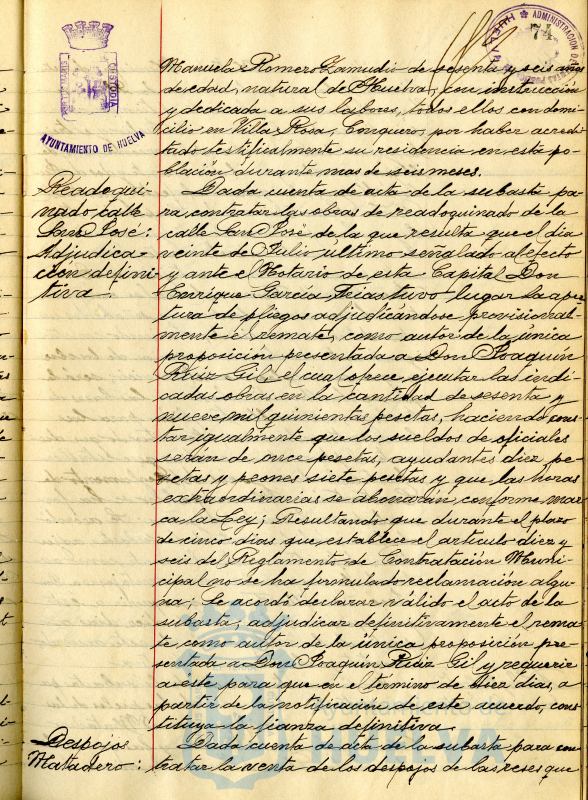 74
ADMINISTRACION DE
HUELVA
PORTUS MARIS
CUSTODIA
AYUNTAMIENTO DE HUELVA
Manuela Romero Zamudio de sesenta y seis años
de edad, natural de Huelva, con instrucción
y dedicada a sus labores, todos ellos con domi-
cilio en Villa Rosa, Conquero, por haber acredi-
tado testificalmente su residencia en esta po-
blación durante mas de seis meses.
Readoqui-
nado calle
San José:
Adjudica-
ción defini-
tiva.
Dada cuenta de acta de la subasta pa-
ra contratar las obras de readoquinado de la
calle San José de la que resulta que el día
veinte de Julio último señalado al efecto
y ante el Notario de esta Capital Don
Enrique García, tuvo lugar la aper-
tura de pliegos adjudicándose provisional-
mente el remate, como autor de la única
proposición presentada a Don Joaquín
Ruiz Gil, el cual ofrece ejecutar las indi-
cadas obras en la cantidad de sesenta y
nueve mil quinientas pesetas, haciendo cons-
tar igualmente que los sueldos de oficiales
serán de once pesetas, ayudantes diez pe-
setas y peones siete pesetas y que las horas
extraordinarias se abonarán conforme mar-
ca la Ley; Resultando que durante el plazo
de cinco dias que establece el artículo diez y
seis del Reglamento de Contratación Muni-
cipal no se ha formulado reclamación algu-
na; Se acordó declarar válido el acto de la
subasta, adjudicar definitivamente el rema-
te como autor de la única proposición pre-
sentada a Don Joaquín Ruiz Gil y requerir
a este para que en el termino de diez dias, a
partir de la notificación de este acuerdo, cons-
tituya la fianza definitiva.
Despojos
Matadero:
Dada cuenta de acta de la subasta para con-
tratar la venta de los despojos de las reses que
HUELVA